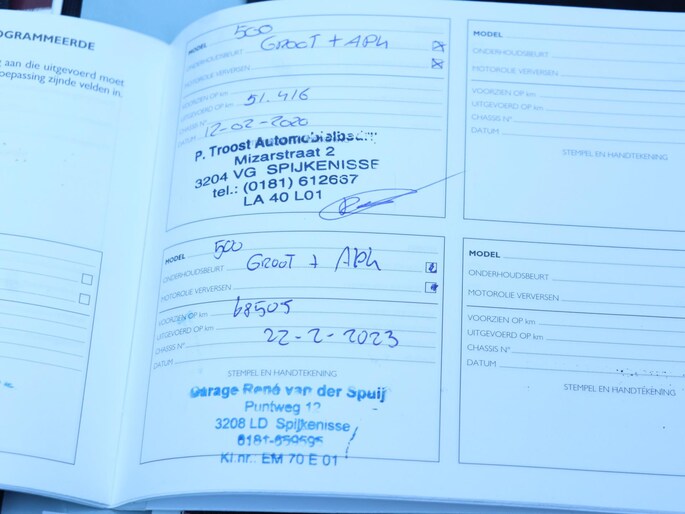 OGRAMMEERDE
g aan die uitgevoerd moet
oepassing zijnde velden in.
MODEL 500
ONDERHOUDSBEURT GROOT + APK
MOTOROLIE VERVERSEN
VOORZIEN OP km
UITGEVOERD OP km 51.416
CHASSIS N°
DATUM 12-02-2020
P. Troost Automobielbedrijf
Mizarstraat 2
3204 VG SPIJKENISSE
tel.: (0181) 612667
LA 40 L01
MODEL 500
ONDERHOUDSBEURT GROOT + APK
MOTOROLIE VERVERSEN
VOORZIEN OP km 68505
UITGEVOERD OP km
CHASSIS N° 22-2-2023
DATUM
STEMPEL EN HANDTEKENING
Garage René van der Spuij
Puntweg 12
3208 LD Spijkenisse
0181-659595
Kl.nr.: EM 70 E 01
MODEL
ONDERHOUDSBEURT
MOTOROLIE VERVERSEN
VOORZIEN OP km
UITGEVOERD OP km
CHASSIS N°
DATUM
STEMPEL EN HANDTEKENING
MODEL
ONDERHOUDSBEURT
MOTOROLIE VERVERSEN
VOORZIEN OP km
UITGEVOERD OP km
CHASSIS N°
DATUM
STEMPEL EN HANDTEKENING